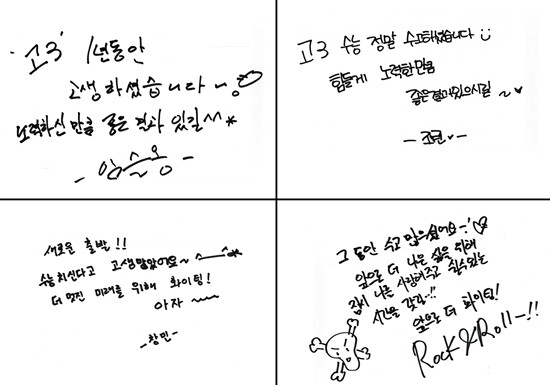 '고3' 1년동안
고생하셨습니다~
노력하신 만큼 좋은 결과 있길^^*
- 임슬옹 -
고3 수능 정말 수고하셨습니다
힘들게 노력한만큼
좋은결과있으시길 ~♥
- 조권♥ -
새로운 출발!!
수능치신다고 고생많았어요~ ^__^*
더 멋진 미래를 위해 화이팅!
아자 ~~
-창민-
그동안 수고 많으셨어요-!♡
앞으로 더 나은 삶을 위해
잠시 나를 사랑해주고 쉴수있는
시간을 갖길..!!
앞으로 더 화이팅!
Rock & Roll-!!